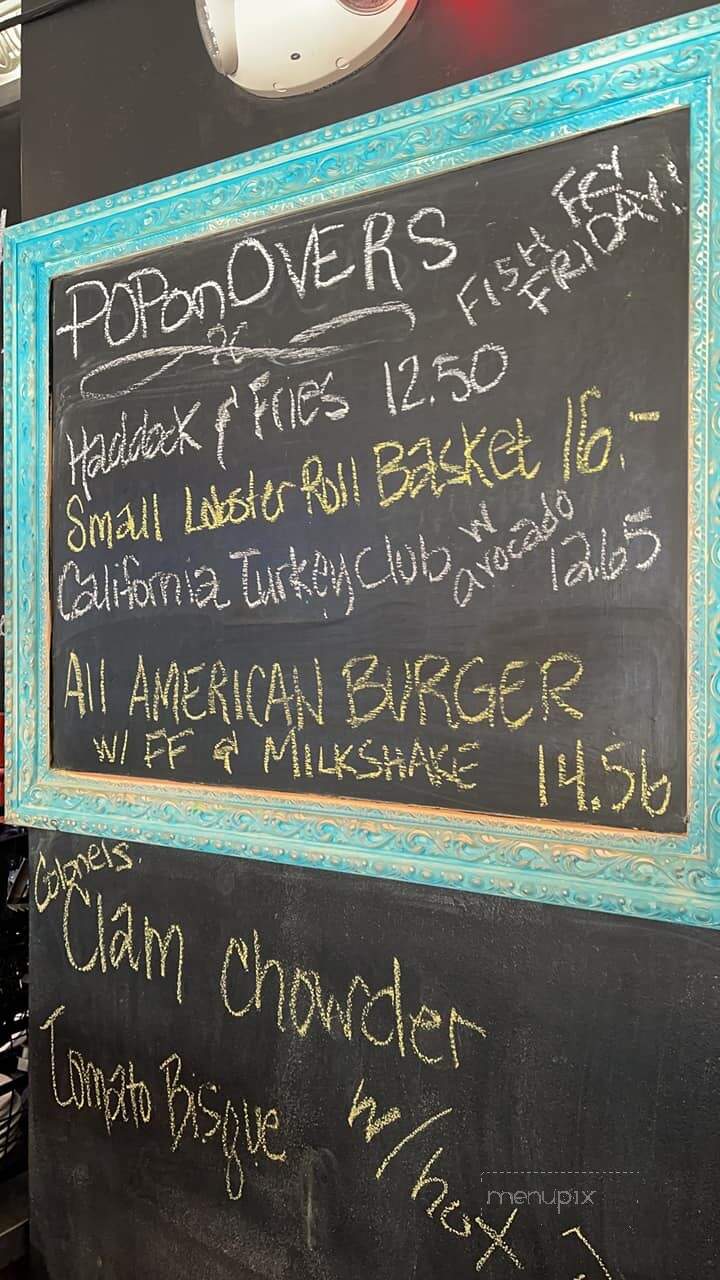 POPonOVERS
FISH FEY
FRIDAY!
Haddock & Fries 12.50
Small Lobster Roll Basket 16.-
California Turkey Club w avocado 12.65
All AMERICAN BURGER
W/ FF & MILKSHAKE 14.56
Colonels
Clam Chowder
Tomato Bisque
w/ hot
menupix